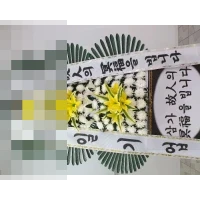 故人의 冥福을 빕니다
삼가 故人의
冥福을 빕니다
일기업